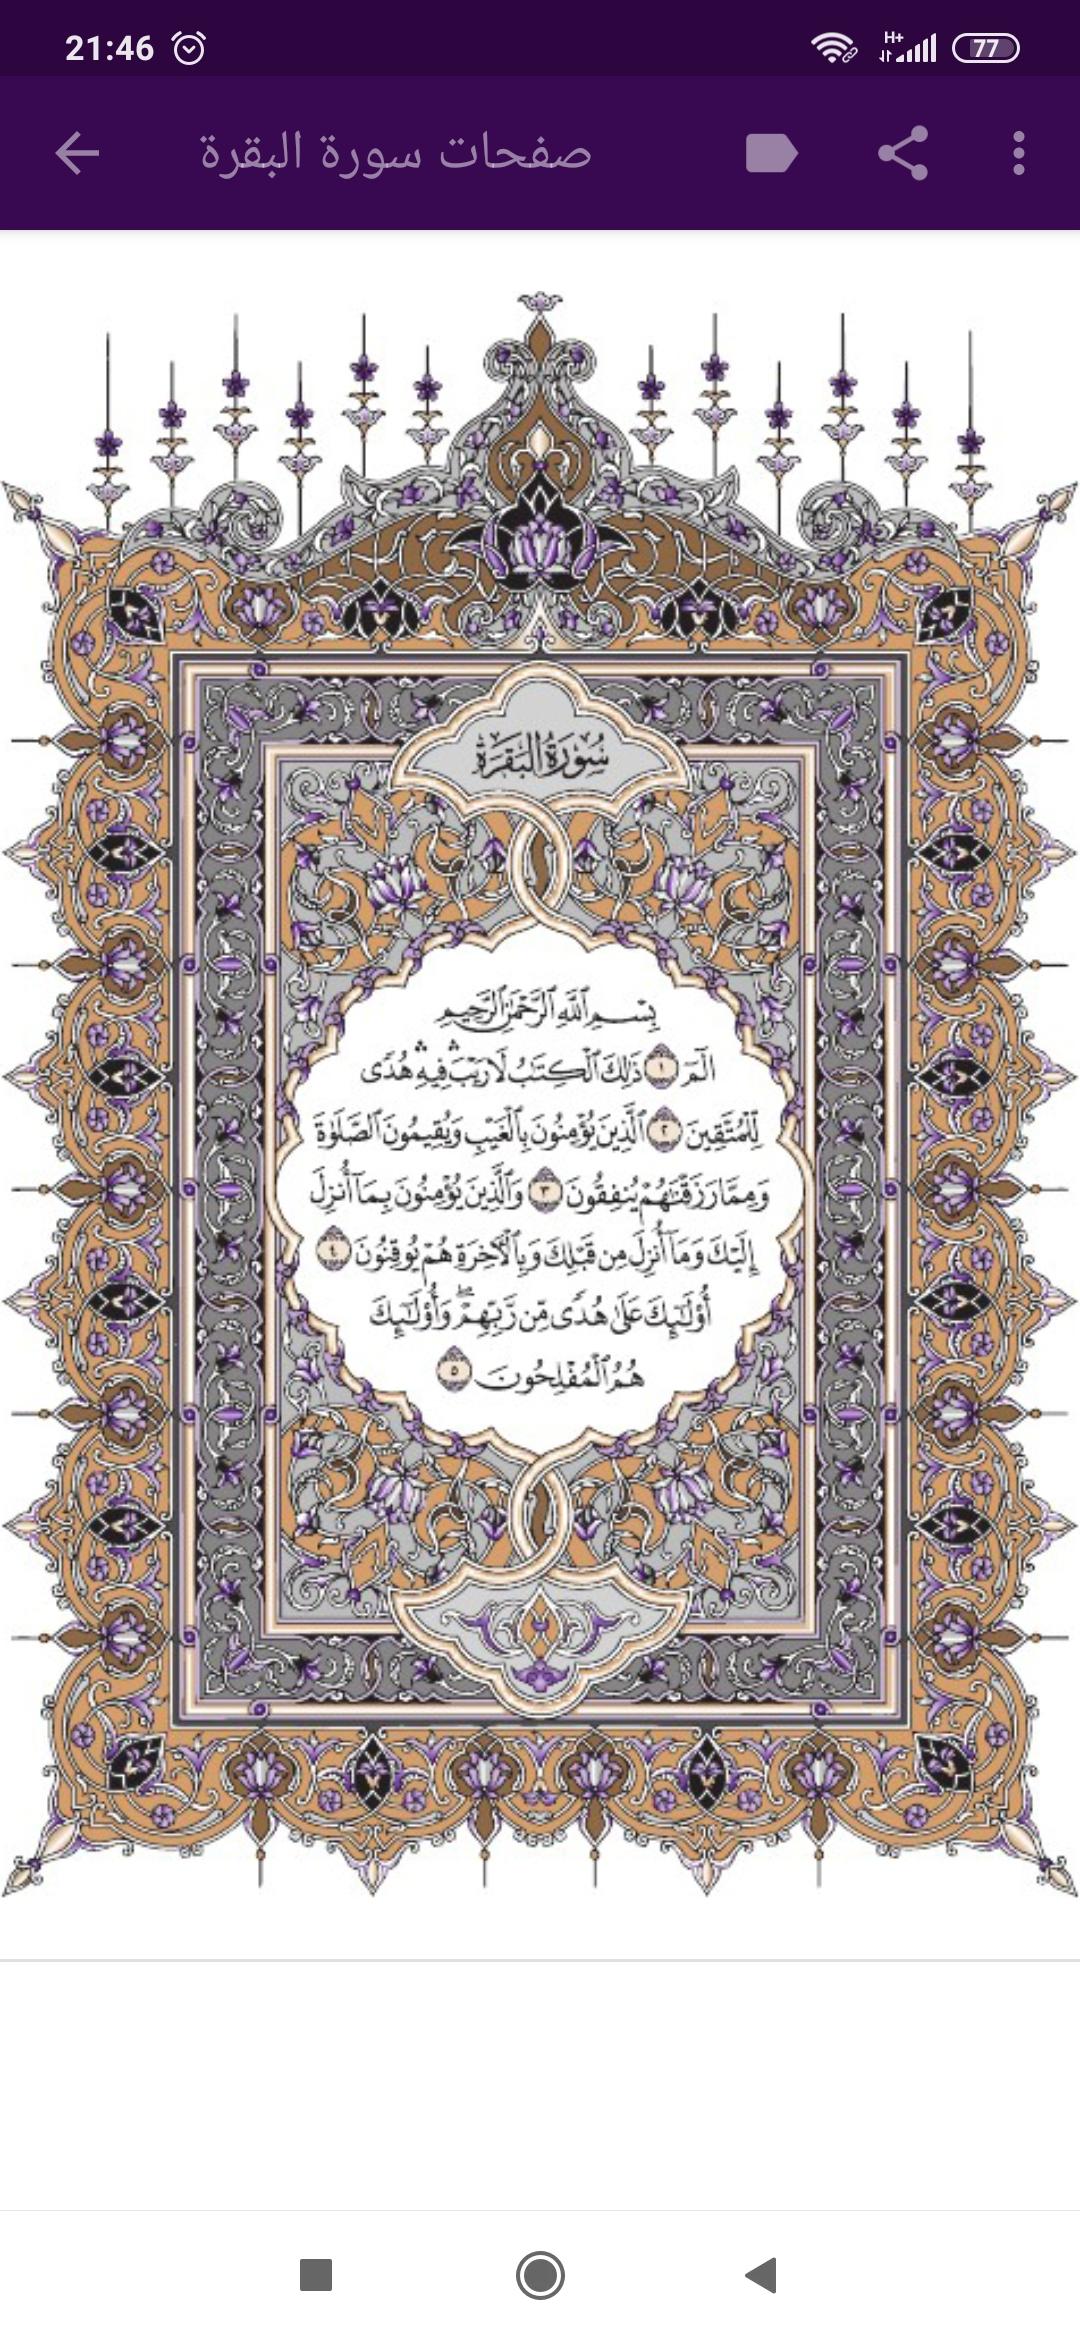 21:46
H+
77
صفحات سورة البقرة
سُورَةُ البَقَرَةِ
بِسْمِ ٱللَّهِ ٱلرَّحْمَٰنِ ٱلرَّحِيمِ
الٓمٓ ١ ذَٰلِكَ ٱلْكِتَٰبُ لَا رَيْبَ ۛ فِيهِ ۛ هُدًى
لِّلْمُتَّقِينَ ٢ ٱلَّذِينَ يُؤْمِنُونَ بِٱلْغَيْبِ وَيُقِيمُونَ ٱلصَّلَوٰةَ
وَمِمَّا رَزَقْنَٰهُمْ يُنفِقُونَ ٣ وَٱلَّذِينَ يُؤْمِنُونَ بِمَآ أُنزِلَ
إِلَيْكَ وَمَآ أُنزِلَ مِن قَبْلِكَ وَبِٱلْءَاخِرَةِ هُمْ يُوقِنُونَ ٤
أُو۟لَٰٓئِكَ عَلَىٰ هُدًى مِّن رَّبِّهِمْ ۖ وَأُو۟لَٰٓئِكَ
هُمُ ٱلْمُفْلِحُونَ ٥